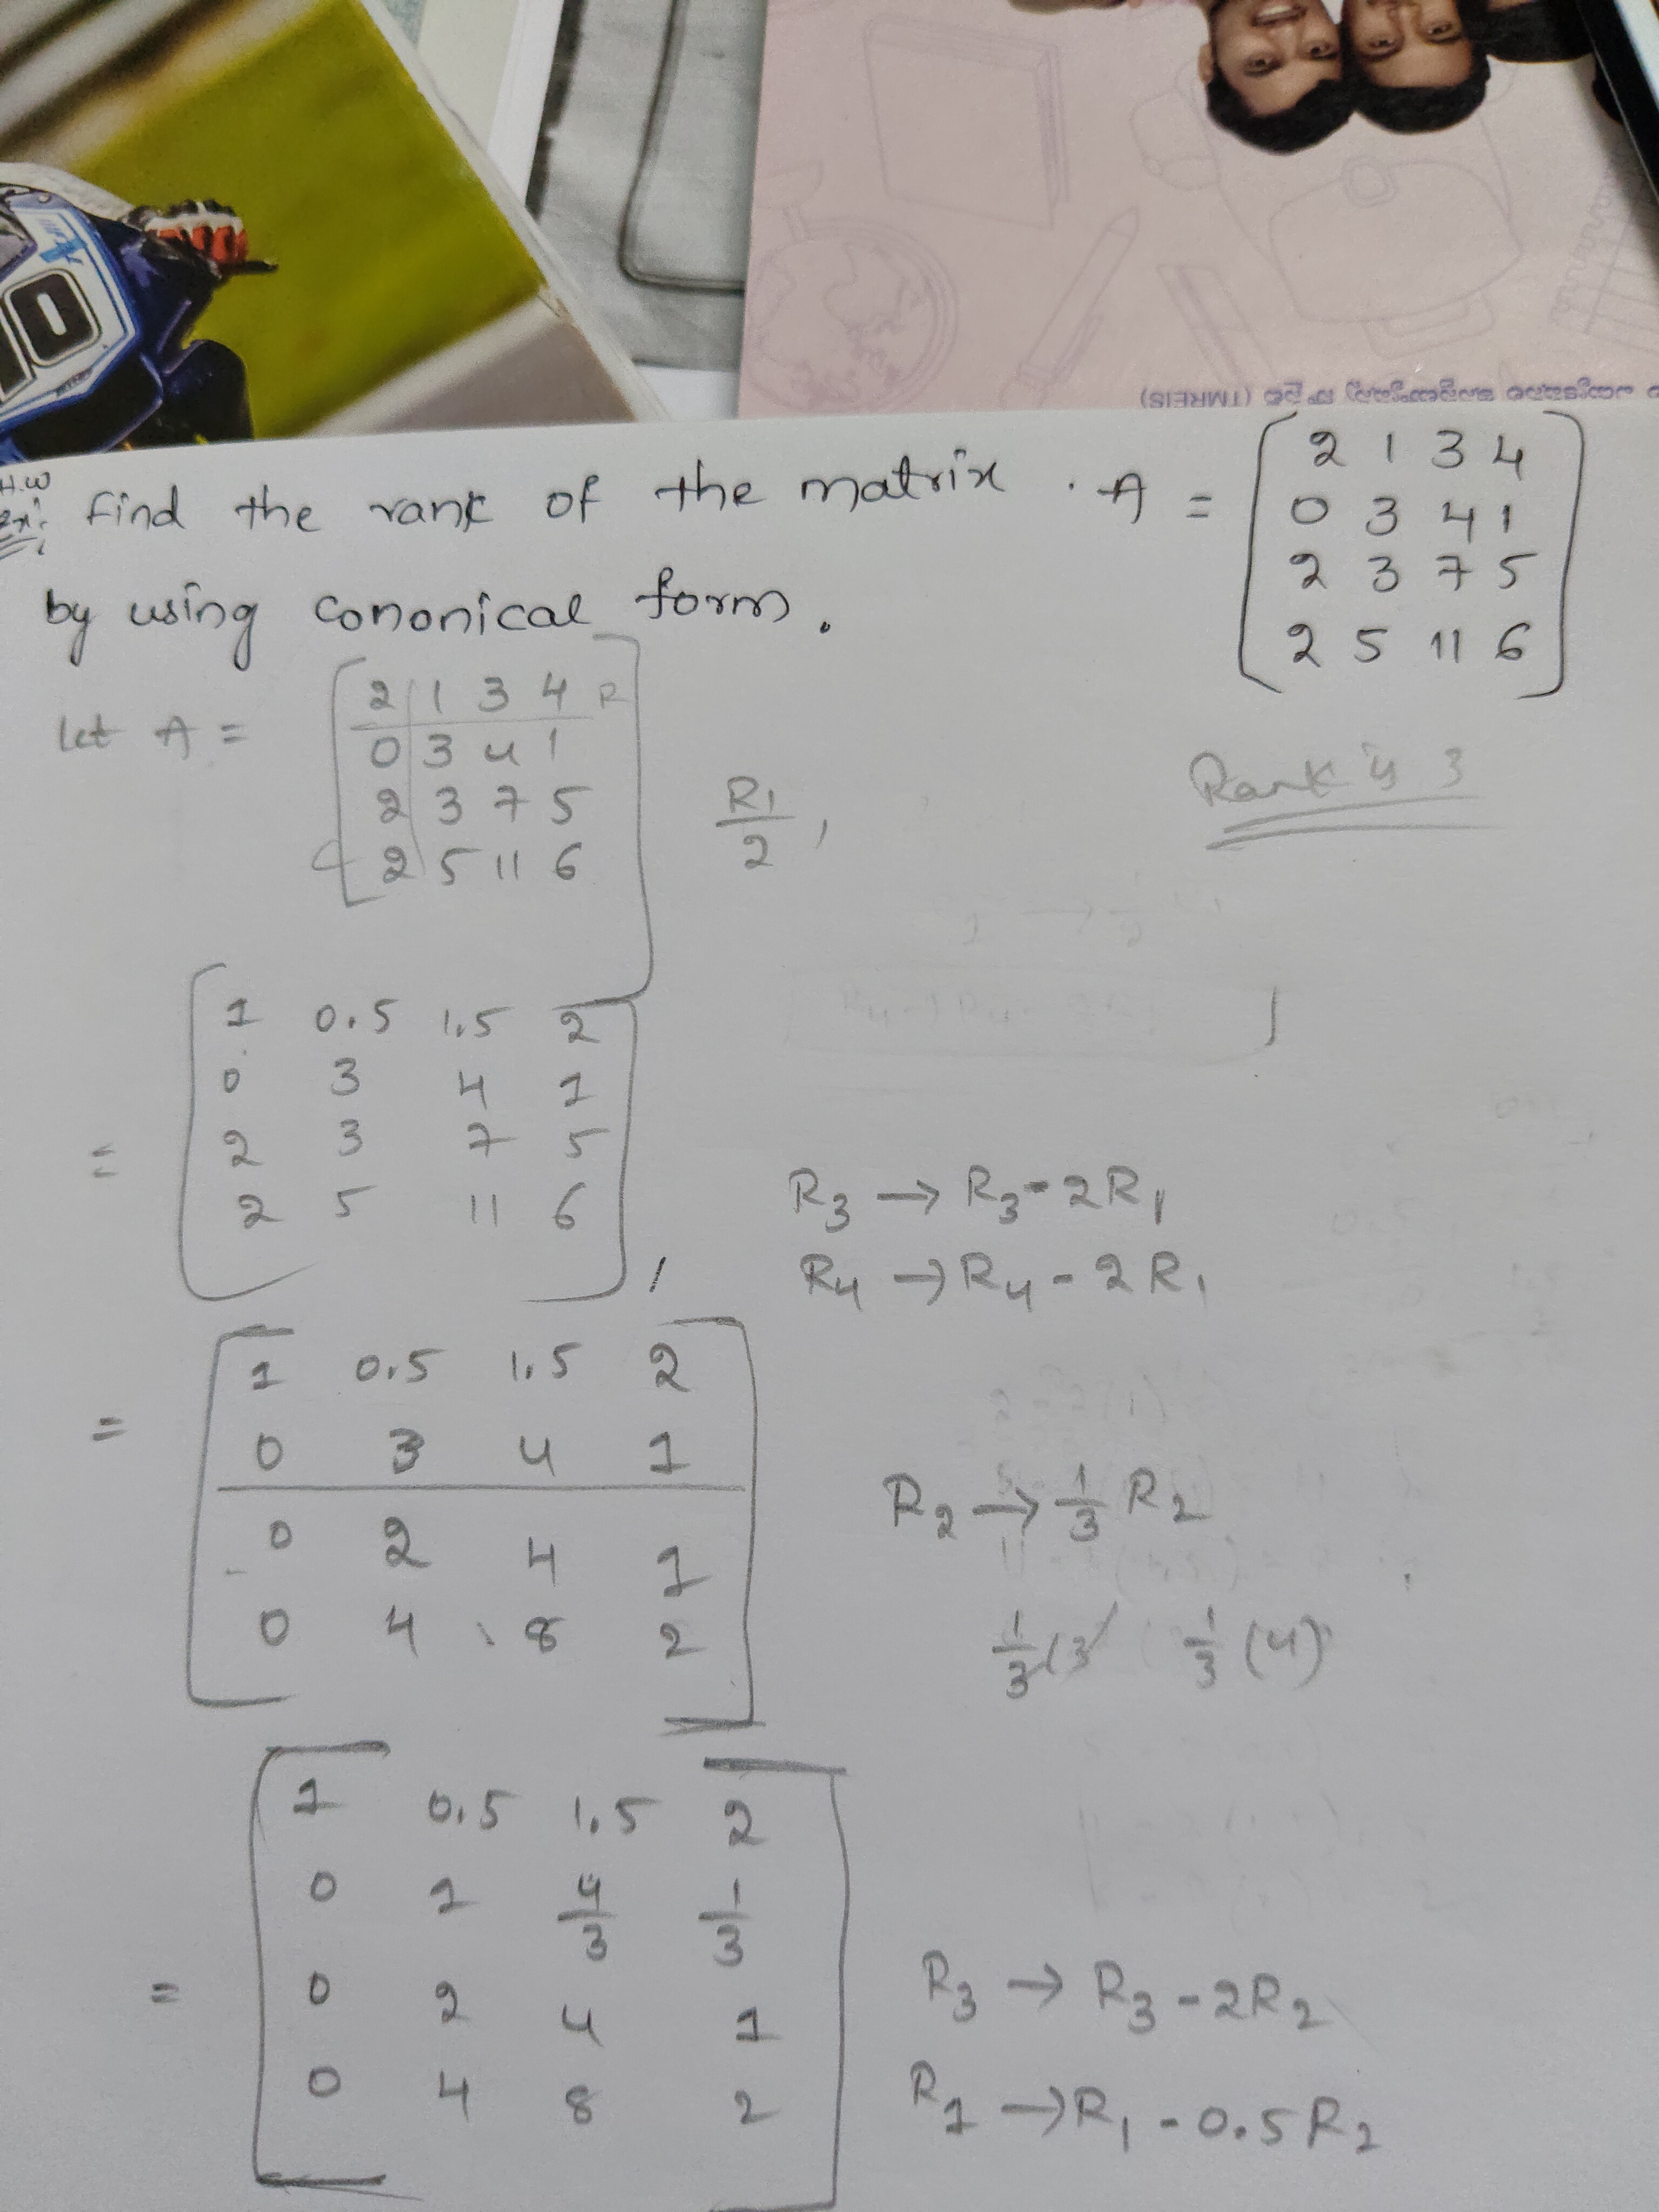 10
(TMREIS)
H.W
Ex:
find the rank of the matrix . A = [2 1 3 4
0 3 4 1
2 3 7 5
2 5 11 6]
by using cononical form.
let A = [2 1 3 4 R
0 3 4 1
2 3 7 5
2 5 11 6]
R1/2 ,
Rank is 3
= [1 0.5 1.5 2
0 3 4 1
2 3 7 5
2 5 11 6] ,
R3 → R3 - 2R1
R4 → R4 - 2R1
= [1 0.5 1.5 2
0 3 4 1
0 2 4 1
0 4 8 2]
R2 → 1/3 R2
1/3 (3 1/3 (4)
= [1 0.5 1.5 2
0 1 4/3 1/3
0 2 4 1
0 4 8 2]
R3 → R3 - 2R2
R1 → R1 - 0.5 R2